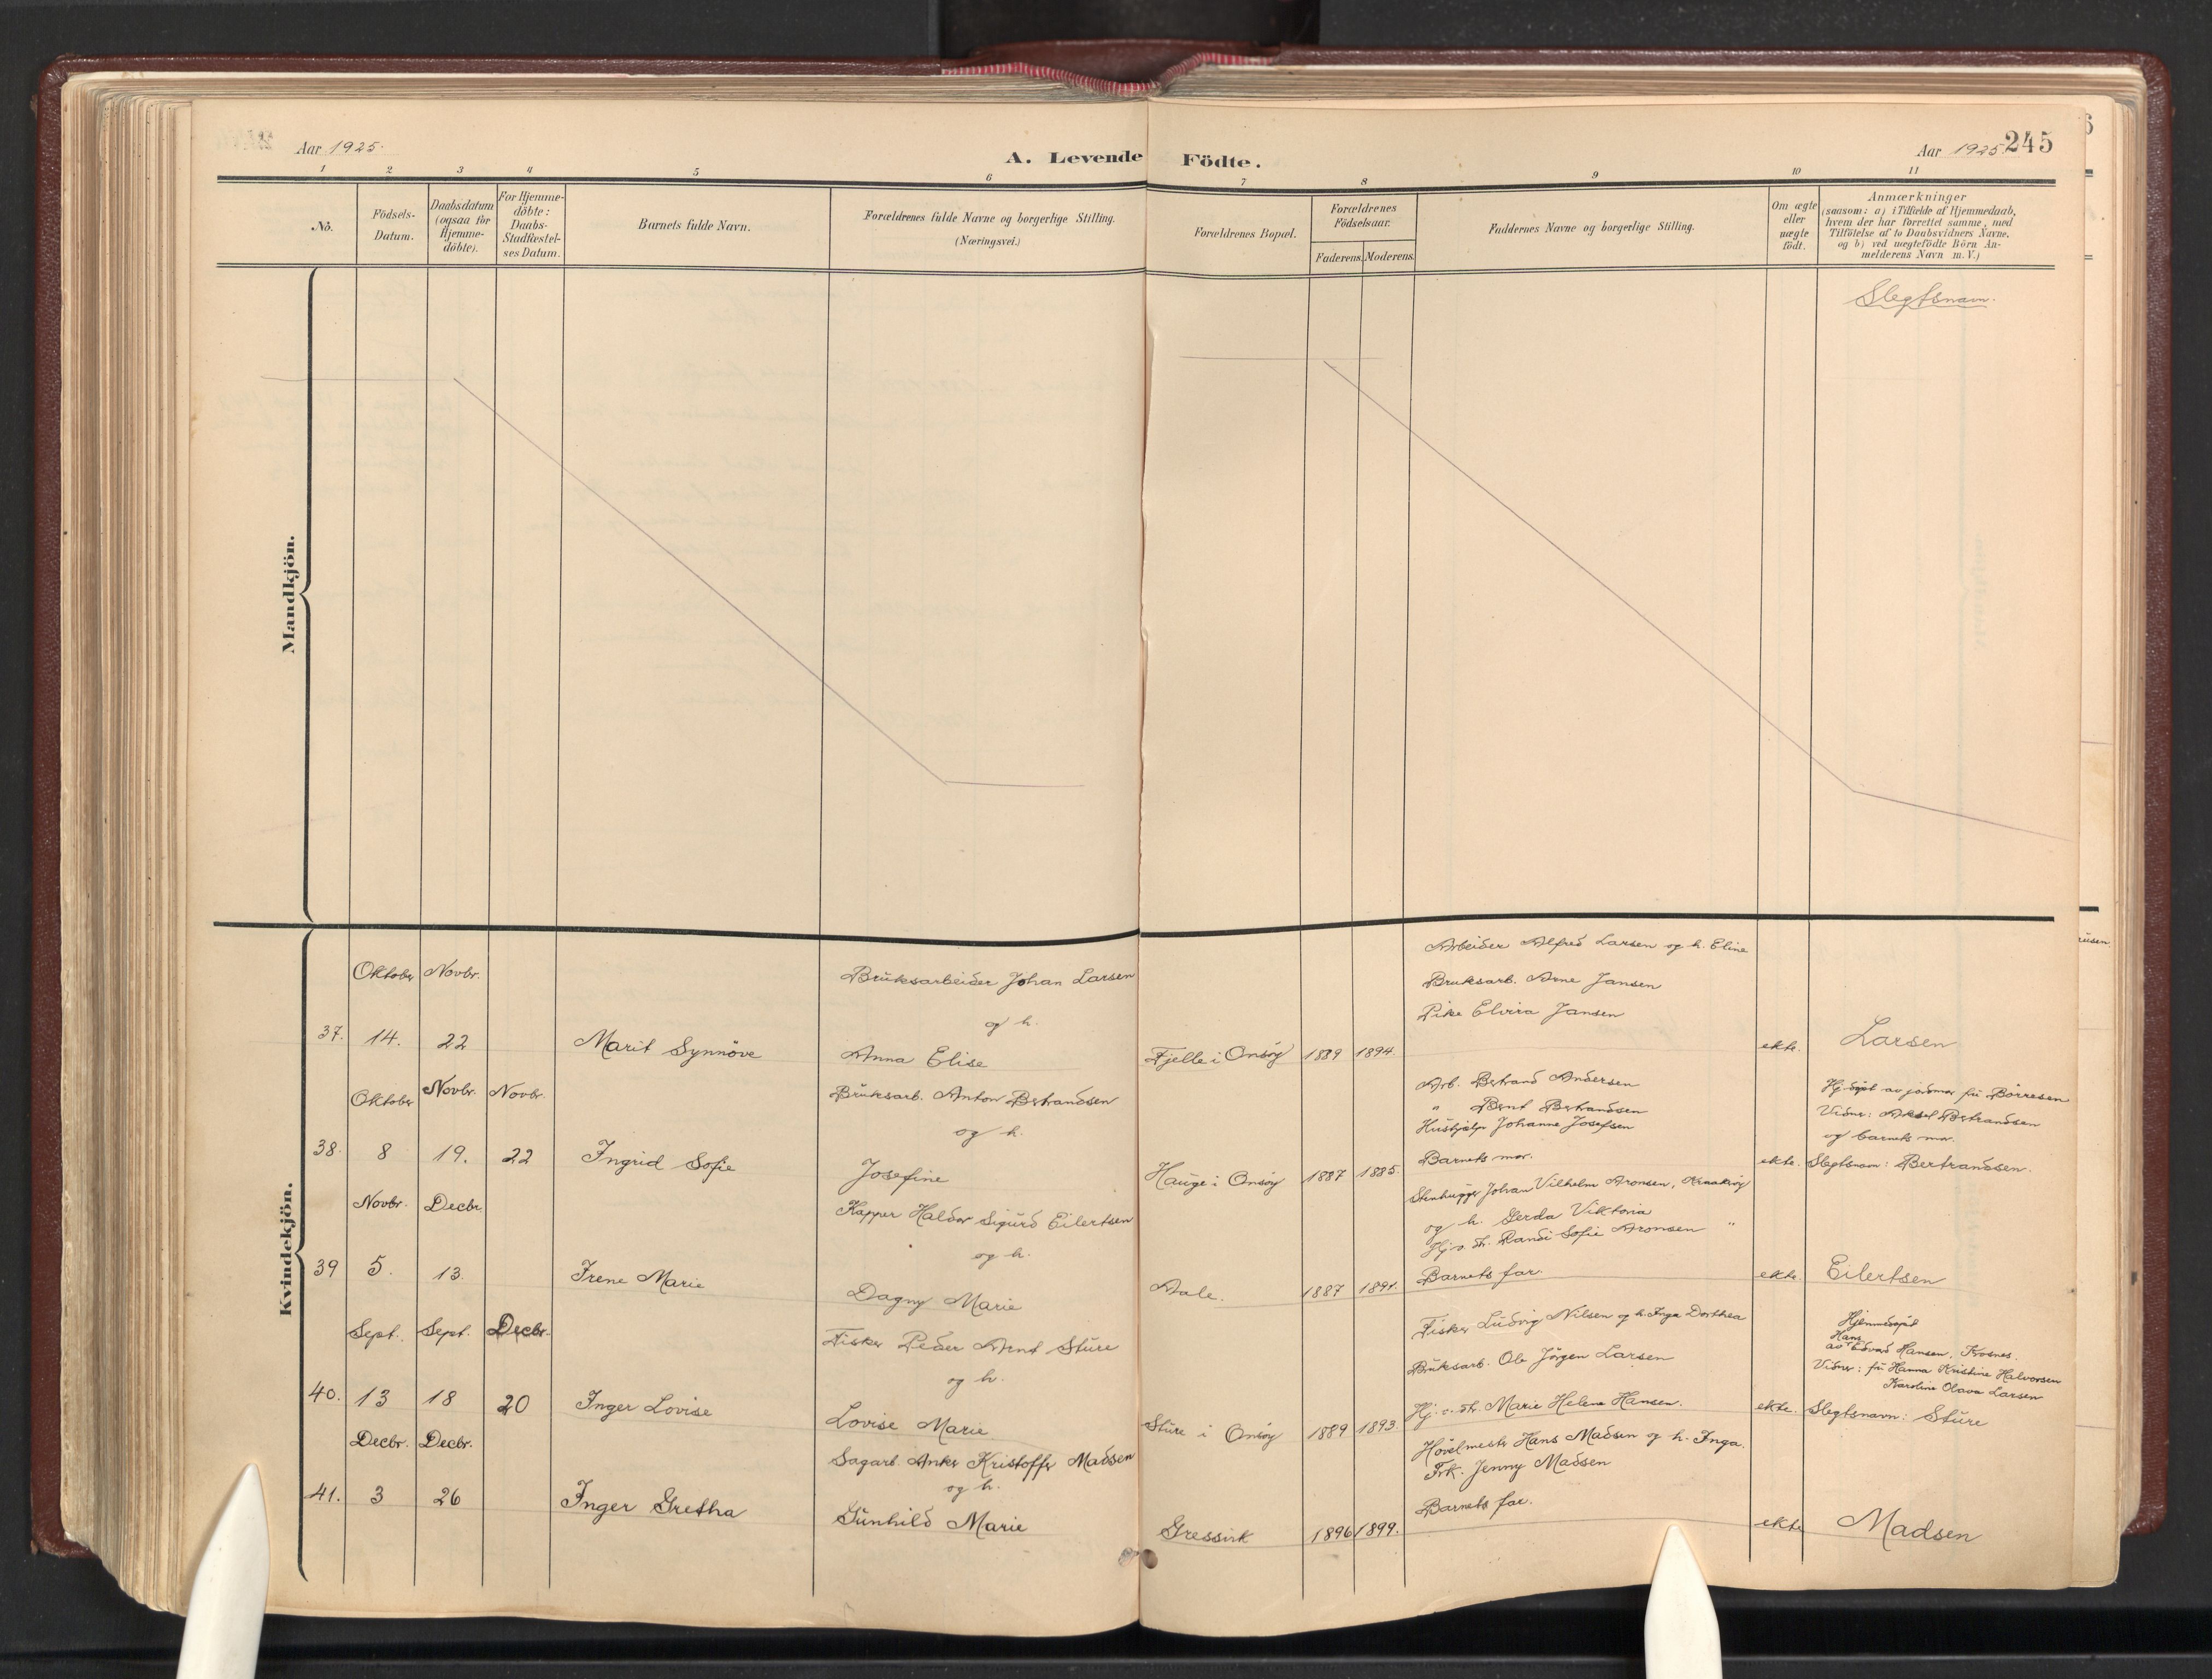 Aar 1925.
A. Levende Födte.
Aar 1925.
245
1 2 3 4 5 6 7 8 9 10 11
Nö.
Födsels-Datum.
Daabsdatum (ogsaa for Hjemme-döbte).
For Hjemme-döbte: Daabs-Stadfæstel-ses Datum.
Barnets fulde Navn.
Forældrenes fulde Navne og borgerlige Stilling.
(Næringsvei.)
Forældrenes Bopæl.
Forældrenes Födselsaar.
Faderens. Moderens.
Faddernes Navne og borgerlige Stilling.
Om ægte eller uægte födt.
Anmærkninger
(saasom: a) i Tilfælde af Hjemmedaab,
hvem der har forrettet samme, med
Tilföielse af to Daabsvidners Navne,
og b) ved uægtefödte Börn An-
melderens Navn m.V.)
Slegtsnavn.
Mandkjön.
Kvindekjön.
Oktober Novbr.
37. 14. 22 Marit Synnöve
Bruksarbeider Johan Larsen
og h.
Anna Elise
Fjelle i Onsöy 1889 1894.
Arbeider Alfred Larsen og h. Eline
Bruksarb. Arne Jansen
Pike Elvira Jansen
ekte. Larsen
Oktober Novbr. Novbr.
38. 8 19. 22 Ingrid Sofie
Bruksarb. Anton Bertrandsen
og h.
Josefine
Hauge i Onsöy 1887 1885.
Arb. Bertrand Andersen
" Bernt Bertrandsen
Hushjelp Johanne Josefsen
Barnets mor.
ekte.
Hj.döpt av jordmor fru Börresen
Vidner: Aksel Bertrandsen
og barnets mor.
Slegtsnavn: Bertrandsen.
Novbr. Decbr.
39 5. 13. Irene Marie
Kapper Haldor Sigurd Eilertsen
og h.
Dagny Marie
Aale. 1887 1891.
Stenhugger Johan Vilhelm Aronsen,
og h. Gerda Viktoria
Hj.v. dt. Randi Sofie Aronsen "
Barnets far.
ekte. Eilertsen
Sept. Sept. Decbr.
40. 13 18 20 Inger Lovise
Fisker Peder Arnt Sture
og h.
Lovise Marie
Sture i Onsöy 1889 1893.
Fisker Ludvig Nilsen og h. Inga Dorthea
Bruksarb. Ole Jörgen Larsen
Hj. v. dt. Marie Helene Hansen.
ekte.
Hjemmedöpt
Hans
av Edvard Hansen, Frosnes.
Vidner: fru Hanna Kristine Halvorsen
Karoline Olava Larsen
Slegtsnavn: Sture
Decbr. Decbr.
41. 3 26 Inger Gretha
Sagarb. Anker Kristoffer Madsen
og h.
Gunhild Marie
Gressvik 1896 1899.
Hövelmester Hans Madsen og h. Inga.
Frk. Jenny Madsen
Barnets far.
ekte Madsen